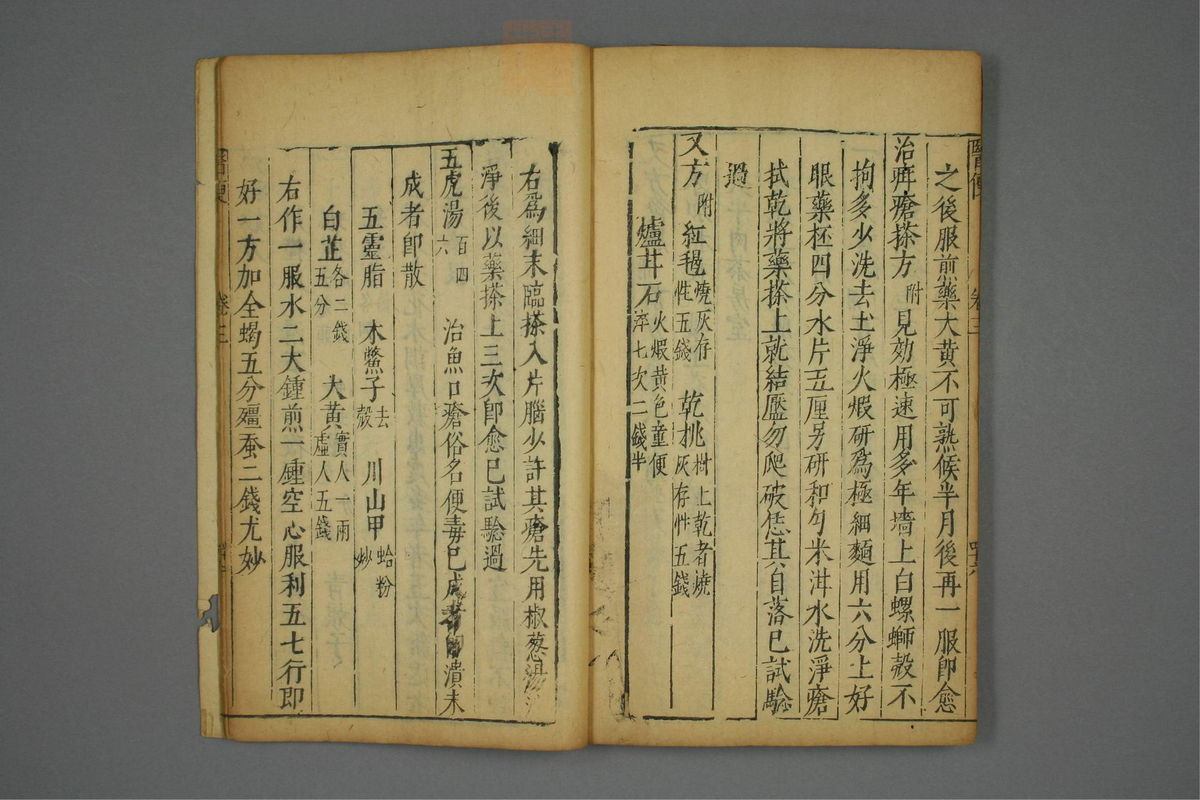 醫便 卷二 四十六
之後服煎藥大黃不可熟候半月後再一服卽愈
治疳瘡搽方附見効極速用多年墻上白螺螄殼不
拘多少洗去土淨火煅研爲極細麵用六分上好
眼藥坯四分水片五厘另研和勻米泔水洗淨瘡
拭乾將藥搽上就結靨勿爬破恁其自落已試驗
過
又方附紅毡燒灰存性五錢 乾桃樹上乾者燒灰存性五錢
爐甘石火煅黃色童便淬七次二錢半
右爲細末臨搽入片腦少許其瘡先用椒葱湯
淨後以藥搽上三次卽愈已試驗過
五虎湯百四六 治魚口瘡俗名便毒已成者潰未
成者卽散
五靈脂 木鱉子去殼 川山甲蛤粉炒
白芷各二錢五分 大黃實人一兩虛人五錢
右作一服水二大鍾煎一鍾空心服利五七行卽
好一方加全蝎五分殭蚕二錢尤妙
醫便 卷二